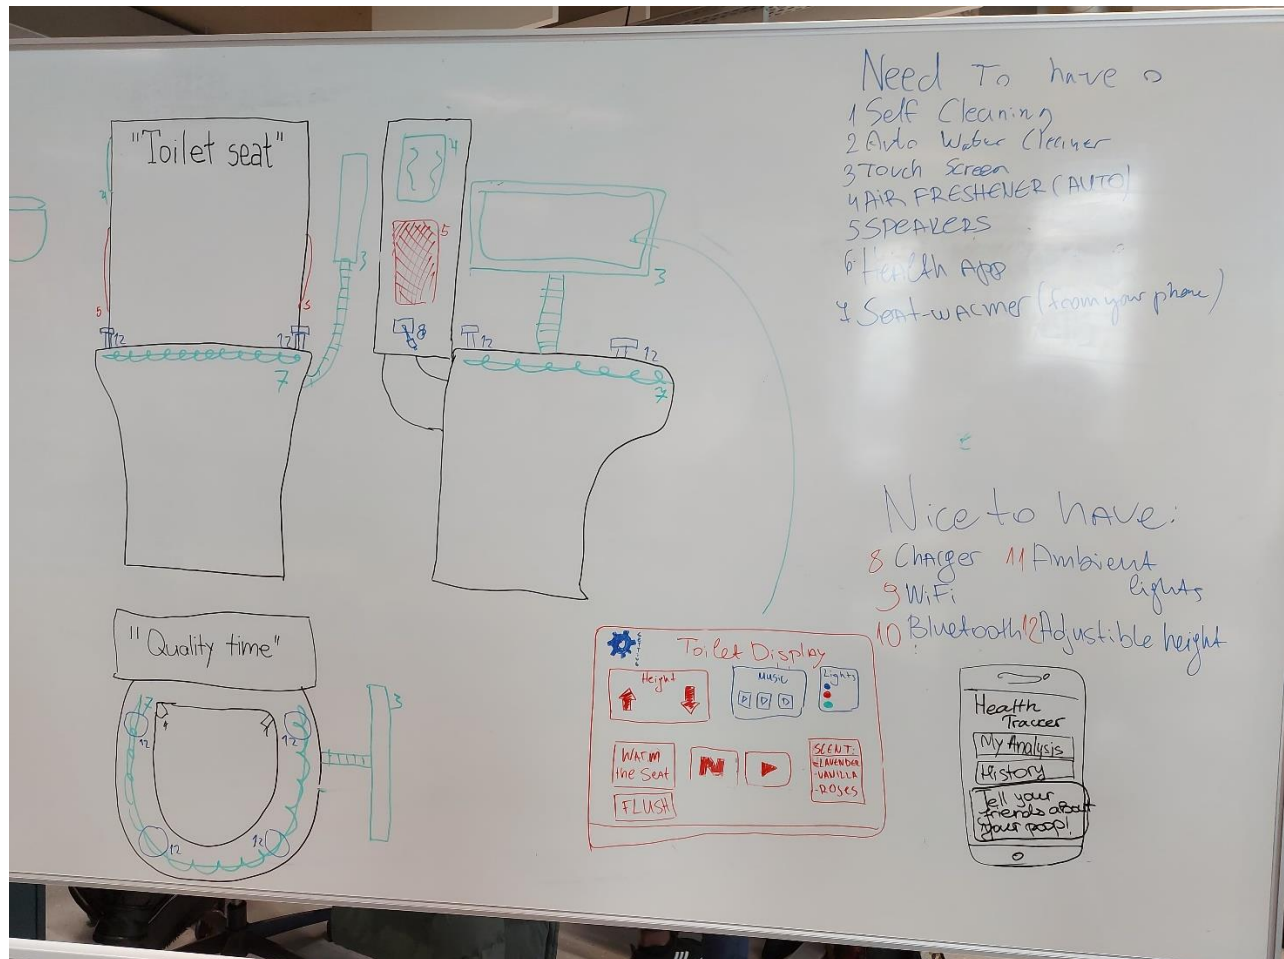 "Toilet seat"
4
5
5
12
12
7
3
4
5
8
12
12
7
3
Need To have
1 Self Cleaning
2 Auto Water Cleaner
3 Touch Screen
4 AIR FRESHENER (AUTO)
5 SPEAKERS
6 Health App
7 SEAT-WARMER (from your phone)
Nice to have:
8 Charger 11 Ambient lights
9 WiFi
10 Bluetooth 12 Adjustible height
"Quality time"
7
12
12
12
12
3
Toilet Display
Height
Music
Lights
WARM
the SEAT
FLUSH
N
SCENT:
-LAVENDER
-VANILLA
-ROSES
Health
Tracker
My Analysis
History
Tell your
friends about
your poop!